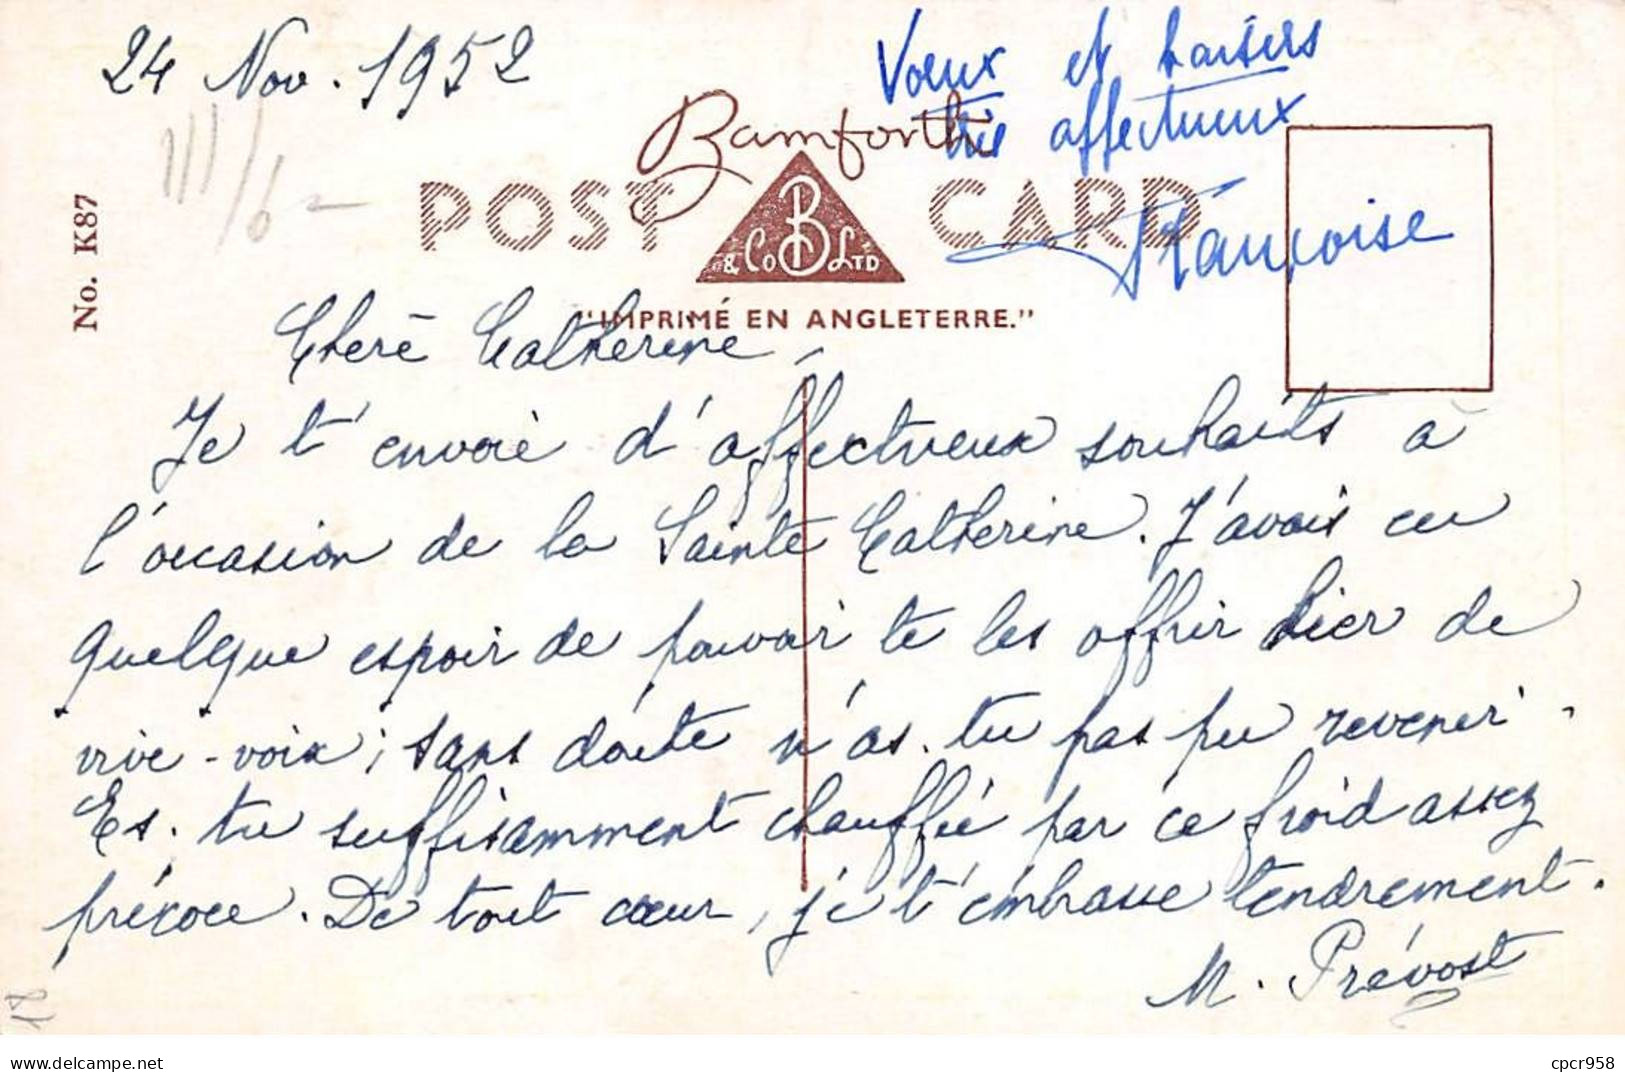 24 Nov. 1952
Voeux et baisers
très affectueux
Françoise
Bamforth
POST CARD
B
& Co LTD
"IMPRIMÉ EN ANGLETERRE."
No. K87
III/6 -
Chère Catherine,
Je t'envoie d'affectueux souhaits à
l'occasion de la Sainte Catherine. J'avais eu
quelque espoir de pouvoir te les offrir hier de
vive-voix; sans doute n'as-tu pas pu revenir.
Es-tu suffisamment chauffée par ce froid assez
précoce. De tout cœur, je t'embrasse tendrement.
M. Prévost
18
delcampe.net
cpcr958